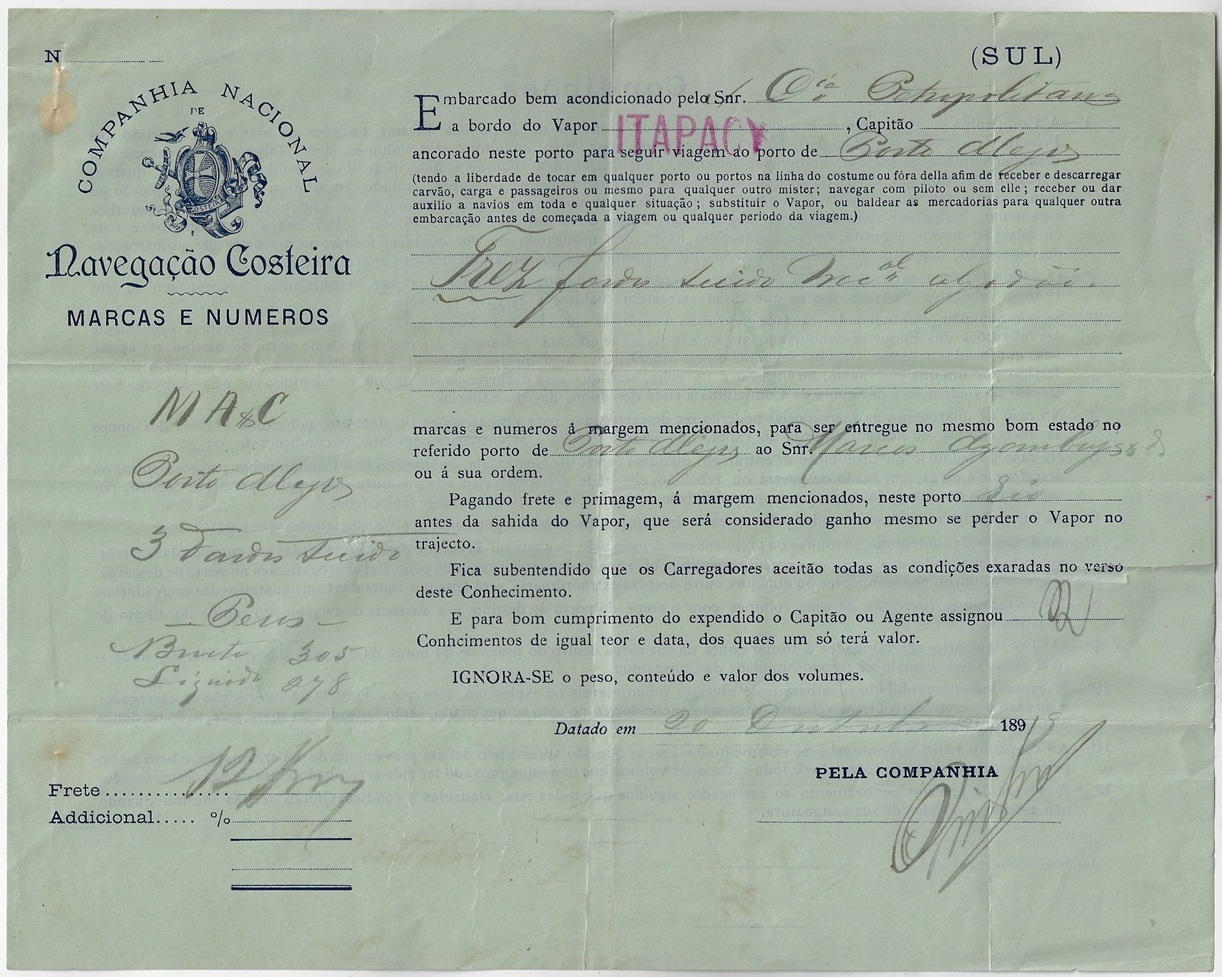 N
(SUL)
COMPANHIA NACIONAL
DE
COSTEIRA
Navegação Costeira
MARCAS E NUMEROS
Embarcado bem acondicionado pelo Snr. Cia Petropolitana
a bordo do Vapor ITAPACY, Capitão
ancorado neste porto para seguir viagem ao porto de Porto Alegre
(tendo a liberdade de tocar em qualquer porto ou portos na linha do costume ou fóra della afim de receber e descarregar
carvão, carga e passageiros ou mesmo para qualquer outro mister; navegar com piloto ou sem elle; receber ou dar
auxilio a navios em toda e qualquer situação; substituir o Vapor, ou baldear as mercadorias para qualquer outra
embarcação antes de começada a viagem ou qualquer periodo da viagem.)
Trez fardos tecido algodão.
M A & C
Porto Alegre
3 Fardos tecido
Pesos
Bruto 305
Liquido 278
marcas e numeros á margem mencionados, para ser entregue no mesmo bom estado no
referido porto de Porto Alegre ao Snr. Marcos
ou á sua ordem.
Pagando frete e primagem, á margem mencionados, neste porto Rio
antes da sahida do Vapor, que será considerado ganho mesmo se perder o Vapor no
trajecto.
Fica subentendido que os Carregadores aceitão todas as condições exaradas no verso
deste Conhecimento.
E para bom cumprimento do expendido o Capitão ou Agente assignou 2
Conhcimentos de igual teor e data, dos quaes um só terá valor.
IGNORA-SE o peso, conteúdo e valor dos volumes.
Datado em 20 Outubro 189
PELA COMPANHIA
Frete
Addicional..... %